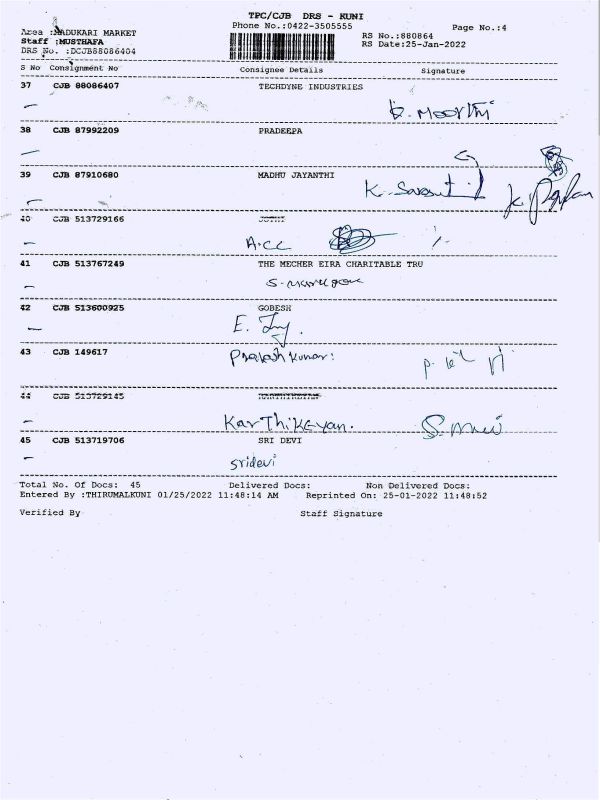 TPC/CJB DRS - KUNI
Phone No.:0422-3505555
Page No.:4
Area :MADUKARI MARKET
RS No.:880864
Staff :MUSTHAFA
RS Date:25-Jan-2022
DRS No. :DCJB88086404
S No Consignment No Consignee Details Signature
37 CJB 88086407 TECHDYNE INDUSTRIES
38 CJB 87992209 PRADEEPA
39 CJB 87910680 MADHU JAYANTHI
40 CJB 513729166 JOTHY
A.CC
41 CJB 513767249 THE MECHER EIRA CHARITABLE TRU
42 CJB 513600925 GOBESH
43 CJB 149617 Prakash Kumar:
44 CJB 513729145
Karthikeyan.
45 CJB 513719706 SRI DEVI
sridevi
Total No. Of Docs: 45 Delivered Docs: Non Delivered Docs:
Entered By :THIRUMALKUNI 01/25/2022 11:48:14 AM Reprinted On: 25-01-2022 11:48:52
Verified By Staff Signature